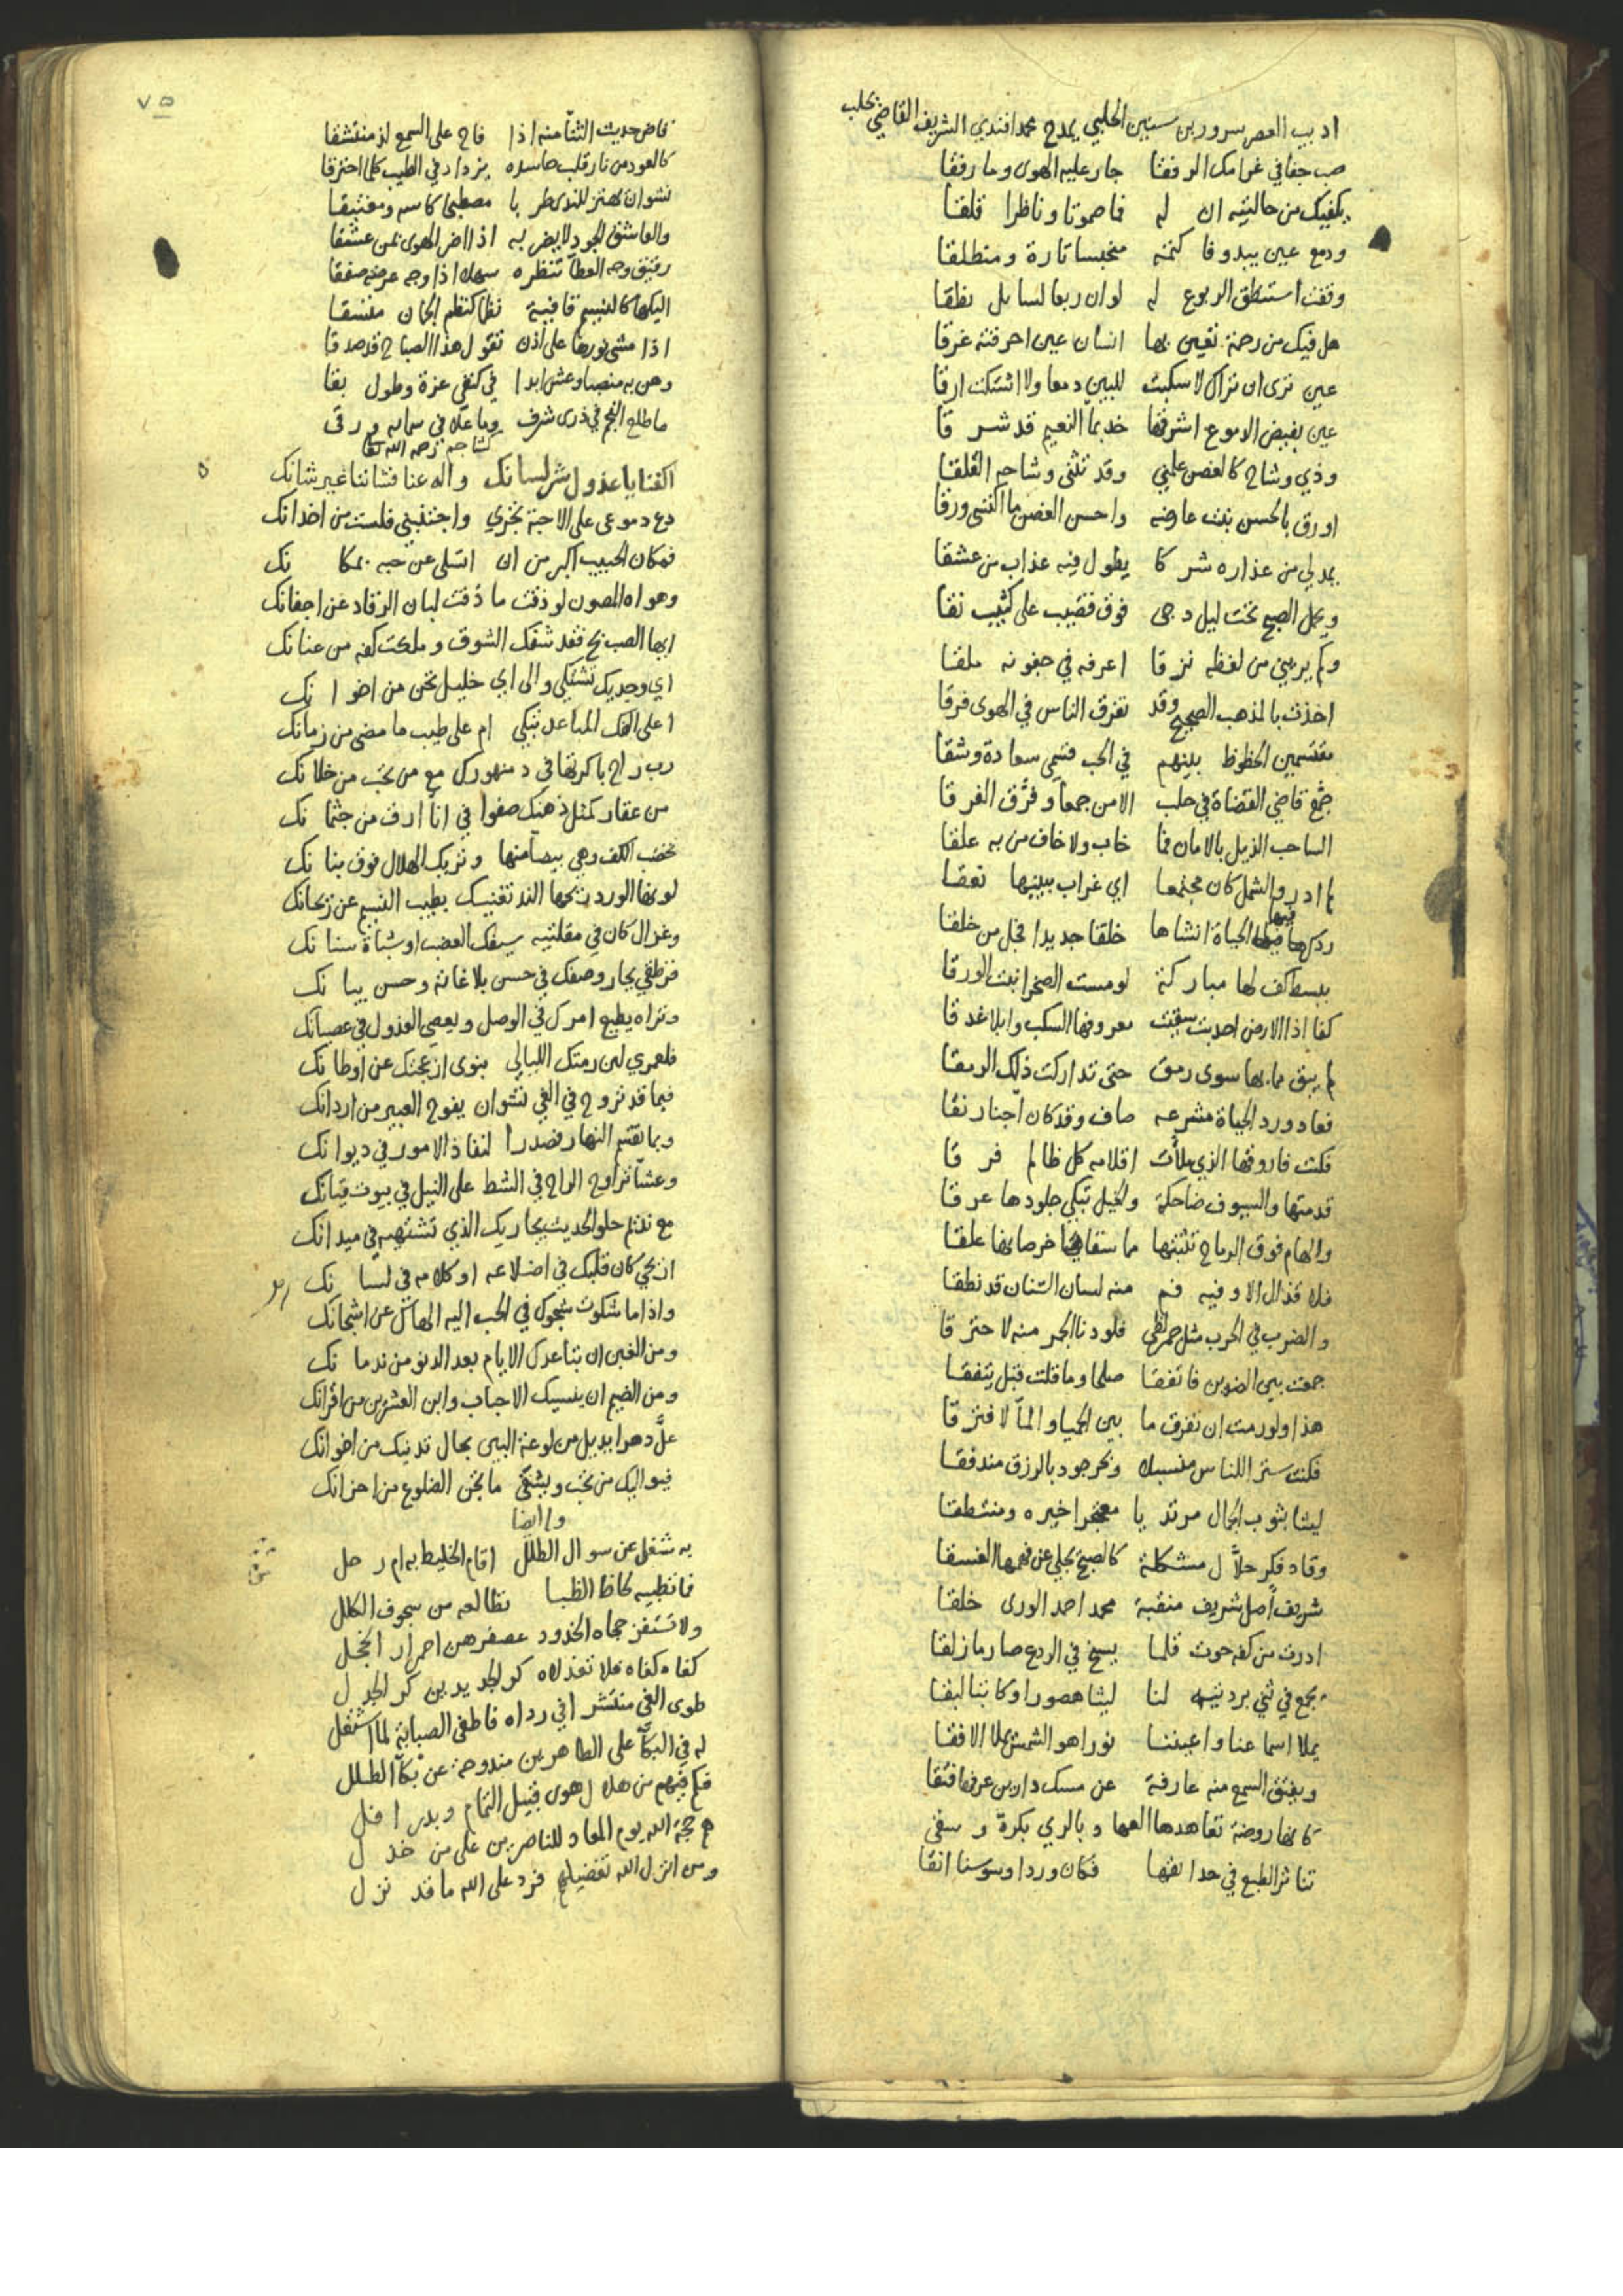 اديب العصر سرور بن سنين الحلبي يمدح محمد افندي الشريف القاضي بحلب
صب جفا في غرامك الرفقا جار عليه الهوى وما رفقا
يكفيك من حالتيه ان له فما صموتا وناظرا قلقا
ودمع عين يبدو فا كتمه منحبسا تارة ومنطلقا
وقفت استنطق الربوع له لو ان ربعا لسايل نطقا
هل فيك من رحمة تقين بها انسان عين احرقته غرقا
عين ترى ان تراك لا سكبت للبين دمعا ولا اشتكت ارقا
عين بفيض الدموع اشرقها خد بما النعيم قد شرقا
وذي وشاح كالغصن علني وقد تثنى وشاحه القلقا
اورق بالحسن بنت عارضه واحسن الغصن ما اكتسى ورقا
يمد لي من عذاره شركا يطول فيه عذاب من عشقا
ويحمل الصبح تحت ليل دجى فوق قضيب على كثيب نقا
وكم يرعني من لفظه نزقا اعرفه في جفونه ملقا
اخذت بالمذهب الصحيح وقد تفرق الناس في الهوى فرقا
مقتسمين الحظوظ بينهم في الحب قسمي سعادة وشقا
جمع قاضي القضاة في حلب الامن جمعا وفرق الفرقا
الساحب الذيل بالامان فما خاب ولا خاف من به علقا
لم ادر والشمل كان مجتمعا اي غراب ببينها نعقا
ردكها فيها الحياة انشاها خلقا جديدا فجل من خلقا
ببسط كف لها مباركة لو مست الصخر انبت الورقا
كفا اذا الارض اجدبت سقيت معروفها السكب وابلا غدقا
لم يبق مما بها سوى رمق حتى تداركت ذلك الرمقا
فعاد ورد الحياة مشرعه صاف وقد كان اجنا رنقا
فكنت فاروقها الذي ملأت اقلامه كل ظالم فرقا
قدمتها والسيوف ضاحكة والخيل تبكي جلودها عرقا
والهام فوق الرماح تثبتها ما سقاها خرصانها علقا
فلا قذال الا وفيه فم منه لسان السنان قد نطقا
والضرب في الحرب مثل جمر لظى فلو دنا البحر منه لاحترقا
جمعت بين الضدين فاتفقا صلحا وما قلت قبل يتفقا
هذا ولو رمت ان تفرق ما بين الحيا والماء لافترقا
فكنت ستر اللناس منسبلا وبحر جود بالرزق مندفقا
ليثا بثوب الجمال مرتديا معتجرا خيره ومنتطقا
وقاد فكر حلال مشكلة كالصبح يجلي عن فهمها الغسقا
شريف اصل شريف منقبة محمد احمد الورى خلقا
ادرت من كفه حوت قلما يسبح في الروع صارما زلقا
يجمع في ثني بردتيه لنا ليثا هصورا وكاتبا لبقا
يملا اسماعنا واعيننا نورا هو الشمس يملا الافقا
ويفتق السمع منه عارفة عن مسك دارين عرفها فتقا
كانها روضة تعاهدها العهاد بالري بكرة وسقى
تناثر الطبع في حدائقها فكان وردا وسوسنا انقا
٧٥
فاض حديث الثناء منه اذا فاح على السمع لذ منتشقا
كالعود من نار قلب حاسده يزداد في الطيب كلما احترقا
نشوان يهتز للندى طربا مصطبحا كاسه ومغتبقا
والعاشق الجود لا يضر به اذا اضر الهوى بمن عشقا
رقيق وجه العطاء تنظره سهلا اذا وجه عرضه صفقا
اليكها كالنسيم قافية نظما كنظم الجمان متسقا
اذا مشى نورها على اذن تقول هذا الصباح قد صدقا
وهن به منصبا وعش ابدا في كنفي عزة وطول بقا
ما طلع النجم في ذرى شرف وما علا في سمايه ورقى
كشاجم رحمه الله تعالى
اكفنا يا عذول شر لسانك واله عنا فشاننا غير شانك
دع دموعي على الاحبة تجري واجتنبني فلست من اخدانك
فمكان الحبيب اكبر من ان اتسلى عن حبه بمكانك
وهواه المصون لو ذقت ما ذقت لبان الرقاد عن اجفانك
ايها الصب بح فقد شفك الشوق وملكت كفه من عنانك
اي وجديك تشتكي والى اي خليل تحن من اخوانك
اعلى الفك المباعد تبكي ام على طيب ما مضى من زمانك
رب راح باكرتها في دمنهورك مع من تحب من خلانك
من عقار كمثل ذهنك صفوا في اناء ارق من جثمانك
تخضب الكف وهي بيضاء منها وتريك الهلال فوق بنانك
لونها الورد ريحها الند تغنيك بطيب النسيم عن ريحانك
وغزال كان في مقلتيه سيفك العضب او شباة سنانك
قرطقي يحار وصفك في حسن بلاغاته وحسن بيانك
وتراه يطيع امرك في الوصل ويعصي العذول في عصيانك
فلعمري لين رمتك الليالي بنوى ازعجتك عن اوطانك
فبما قد تروح في الغي نشوان يفوح العبير من اردانك
وبما تقتم النهار فصدرا لنفاذ الامور في ديوانك
وعشا تراوح الراح في الشط على النيل في بيوت قيانك
مع نديم حلو الحديث يجاريك الذي تشتهيه في ميدانك
اريحي كان قلبك في اضلاعه او كلامه في لسانك
واذا ما شكوت شجوك في الحب اليه الهاك عن اشجانك
ومن الغبن ان تباعدك الايام بعد الدنو من ندمانك
ومن الضيم ان ينسيك الاحباب وابن العشرين من اقرانك
عل دهرا يديل من لوعة البين بحال تدنيك من اخوانك
فيواليك من تحب ويشفي ما تجن الضلوع من احزانك
وله ايضا
به شغل عن سوال الطلل اقام الخليط به ام رحل
فما تطبيه لحاظ الظبا تطالعه من سجوف الكلل
ولا تستفز حجاه الخدود عصفرهن احمرار الخجل
كفاه كفاه فلا تعذلاه كر الجديدين كر الجدل
طوى الغي منتشرا في رداه فاطفى الصبابة لما اشتعل
له في البكاء على الطاهرين مندوحة عن بكاء الطلل
فكم فيهم من هلال هوى قبيل التمام وبدر افل
هم حجة الله يوم المعاد للناصرين على من خذل
ومن انزل الله تفضيلهم فرد على الله ما قد نزل